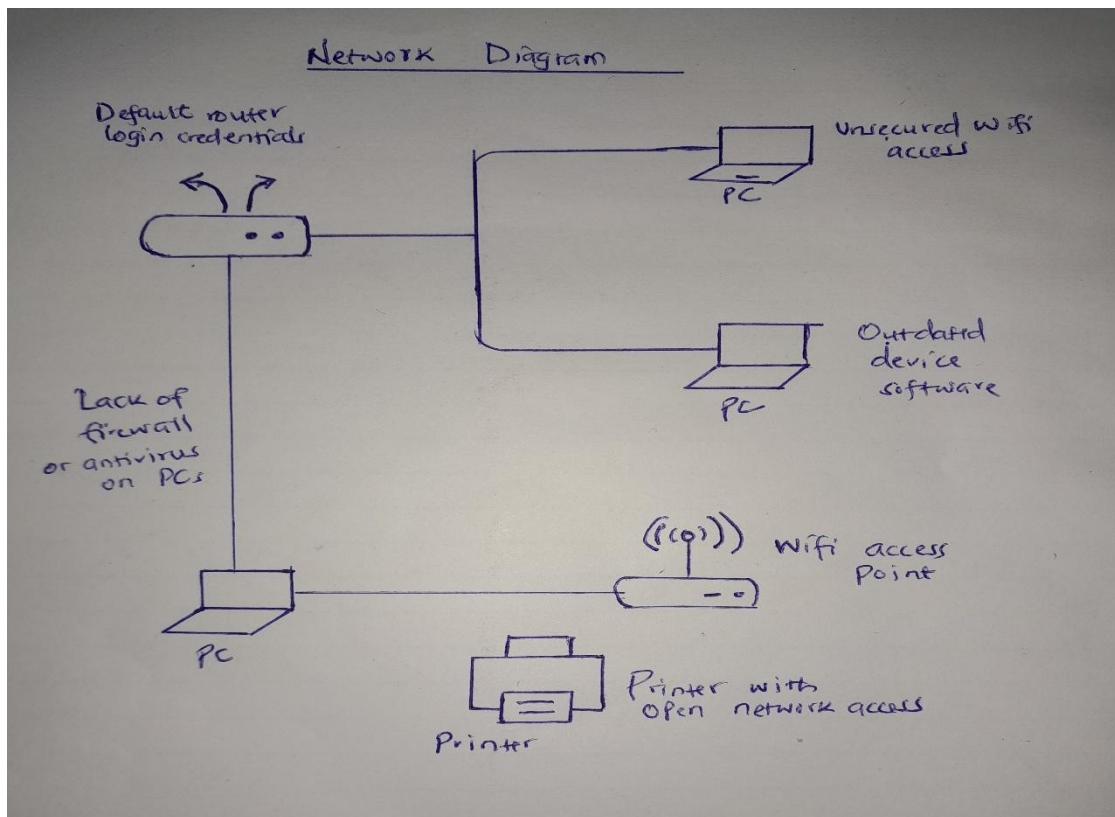 Network Diagram
Default router
login credentials
Unsecured wifi
access
PC
Outdated
device
software
PC
Lack of
firewall
or antivirus
on PCs
Wifi access
Point
PC
Printer with
open network access
Printer